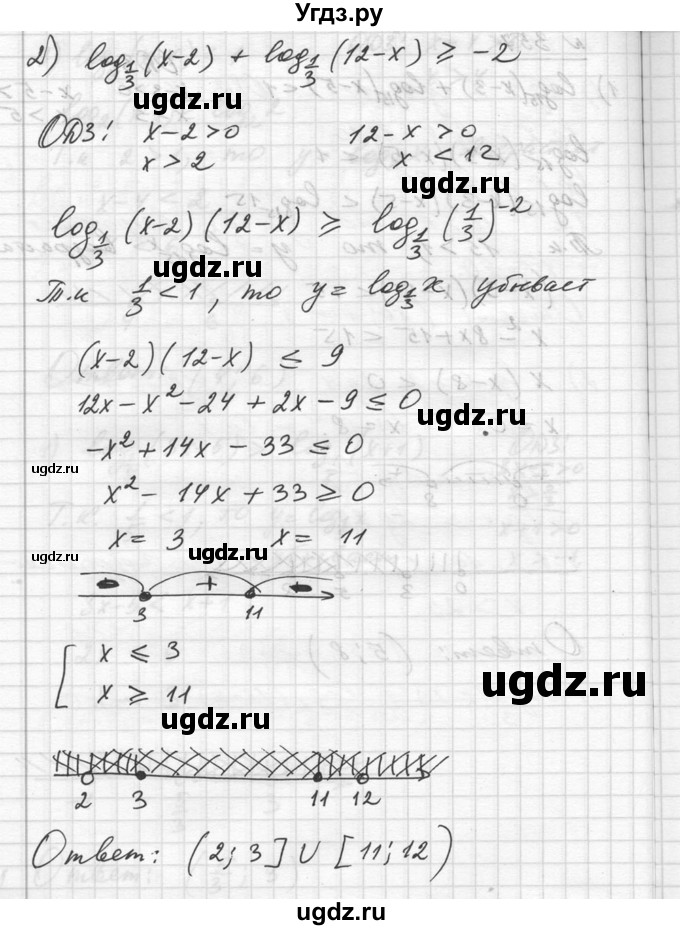 Угдз.ру
2) log_{1/3}(x-2) + log_{1/3}(12-x) ≥ -2
ugdz.ru
ОДЗ: x-2>0 12-x>0
x>2 x<12
ugdz.ru
log_{1/3}(x-2)(12-x) ≥ log_{1/3}(1/3)^{-2}
ugdz.ru
Т.к 1/3<1, то y=log_{1/3}x убывает
(x-2)(12-x) ≤ 9
12x-x²-24+2x-9≤0
ugdz.ru
-x²+14x-33≤0
ugdz.ru
x²-14x+33≥0
x=3 x=11
ugdz.ru ugdz.ru
- + -
3 11
[ x ≤ 3
x ≥ 11
ugdz.ru
ugdz.ru
2 3 11 12
Ответ: (2;3]∪[11;12)
ugdz.ru